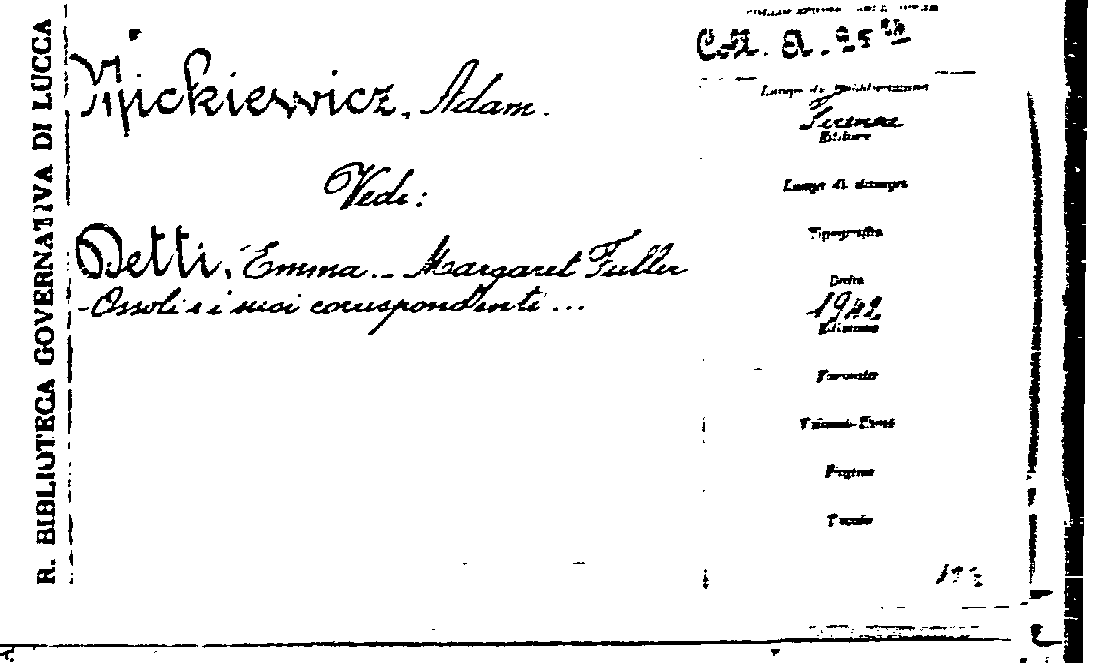 R. BIBLIOTECA GOVERNATIVA DI LUCCA
Mickiewicz, Adam.
Vedi:
Detti, Emma - Margaret Fuller
-Ossoli e i suoi corrispondenti ...
Coll. A. 95
Luogo di pubblicazione
Firenze
Editore
Luogo di stampa
Tipografia
Data
1942
Edizione
Formato
Volumi-Tomi
Pagine
Tavole